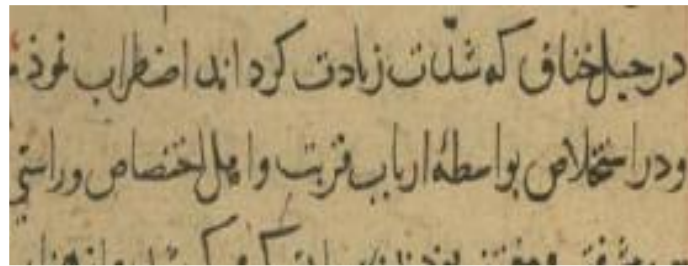 در حبل خناق که شدّت زیادت کرداند اضطراب نموذ
و در استخلاص بواسطهٔ ارباب قربت و اهل اختصاص و راستی